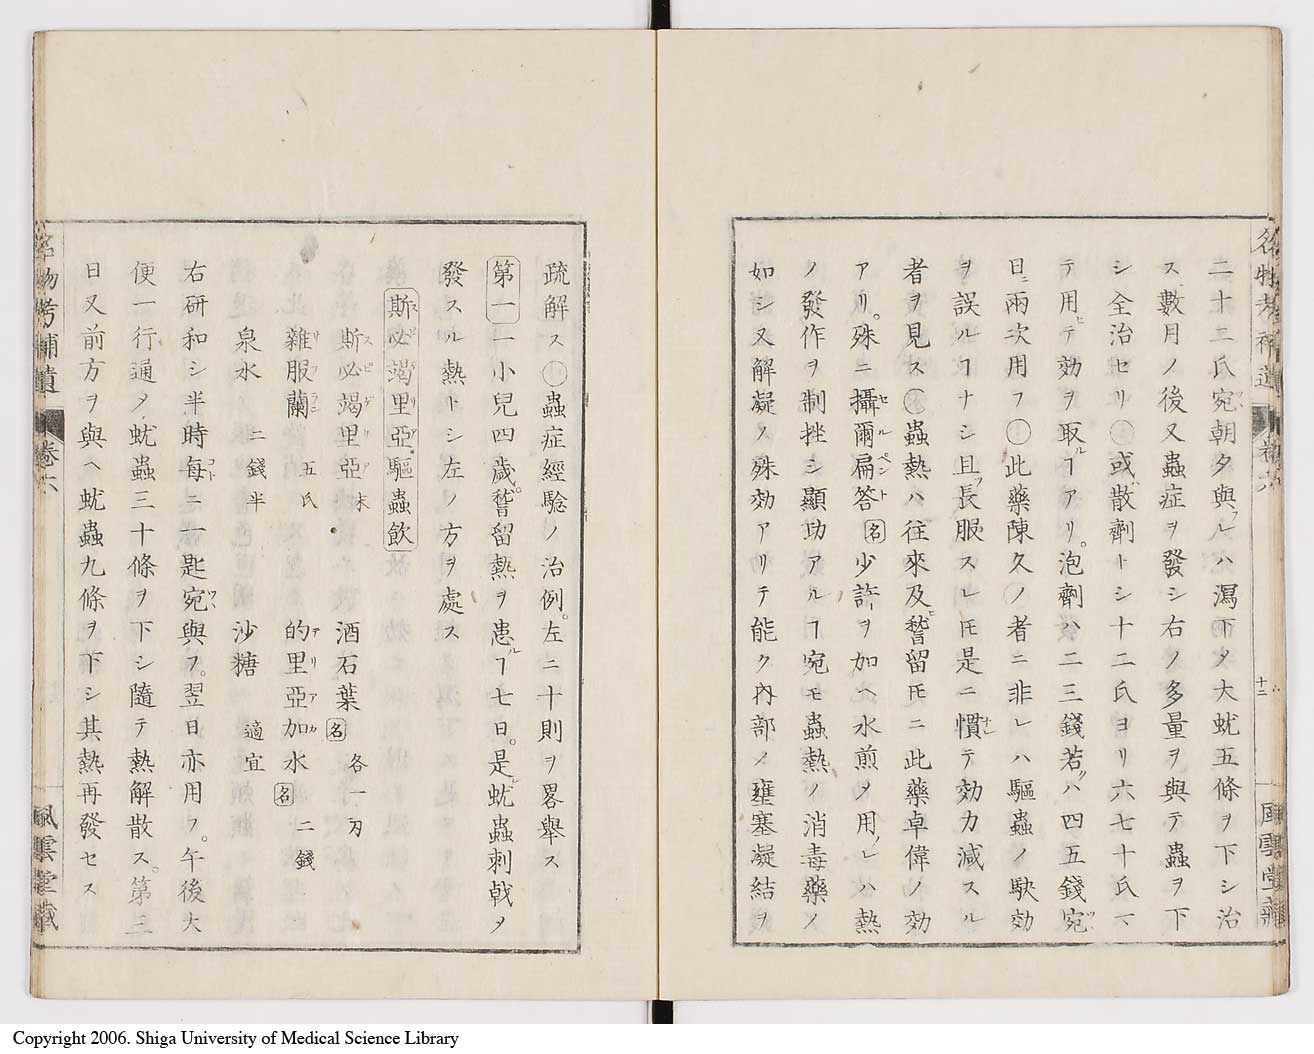 名物考補遺 卷六 十二 風雲堂藏
二十二氏宛朝夕與フレハ瀉下メ大蚘五條ヲ下シ治
ス數月ノ後又蟲症ヲ發シ右ノ多量ヲ與テ蟲ヲ下
シ全治セリ○或散劑トシ十二氏ヨリ六七十氏マ
テ用ヒテ効ヲ取ルヿアリ。泡劑ハ二三錢若ハ四五錢宛
日ニ兩次用フ○此藥陳久ノ者ニ非レハ驅蟲ノ駃効
ヲ誤ルヿナシ且ツ長服スレ𪜈是ニ慣テ効力減スル
者ヲ見ス○蟲熱ハ往來及ヒ稽留𪜈ニ此藥卓偉ノ効
アリ。殊ニ攝爾扁答セルペント名少許ヲ加ヘ水煎メ用フレハ熱
ノ發作ヲ制挫シ顯功アルヿ宛モ蟲熱ノ消毒藥ノ
如シ又解凝ス殊効アリテ能ク內部ノ壅塞凝結ヲ
疏解ス○蟲症經驗ノ治例。左ニ十則ヲ畧舉ス
第一 一小兒四歲。稽留熱ヲ患ルヿ七日。是レ蚘蟲刺戟メ
發スル熱トシ左ノ方ヲ處ス
斯必竭里亞驅蟲飲
斯必竭里亞スピゲリア末 酒石葉名 各一刃
雜服蘭サフラン 五氏 的里亞加水テリアカ名 二錢
泉水 二錢半 沙糖 適宜
右研和シ半時每ニ一匙宛與フ。翌日亦用フ。午後大
便一行通メ蚘蟲三十條ヲ下シ隨テ熱解散ス。第三
日又前方ヲ與ヘ蚘蟲九條ヲ下シ其熱再發セス
名物考補遺 卷六 風雲堂藏
Copyright 2006. Shiga University of Medical Science Library